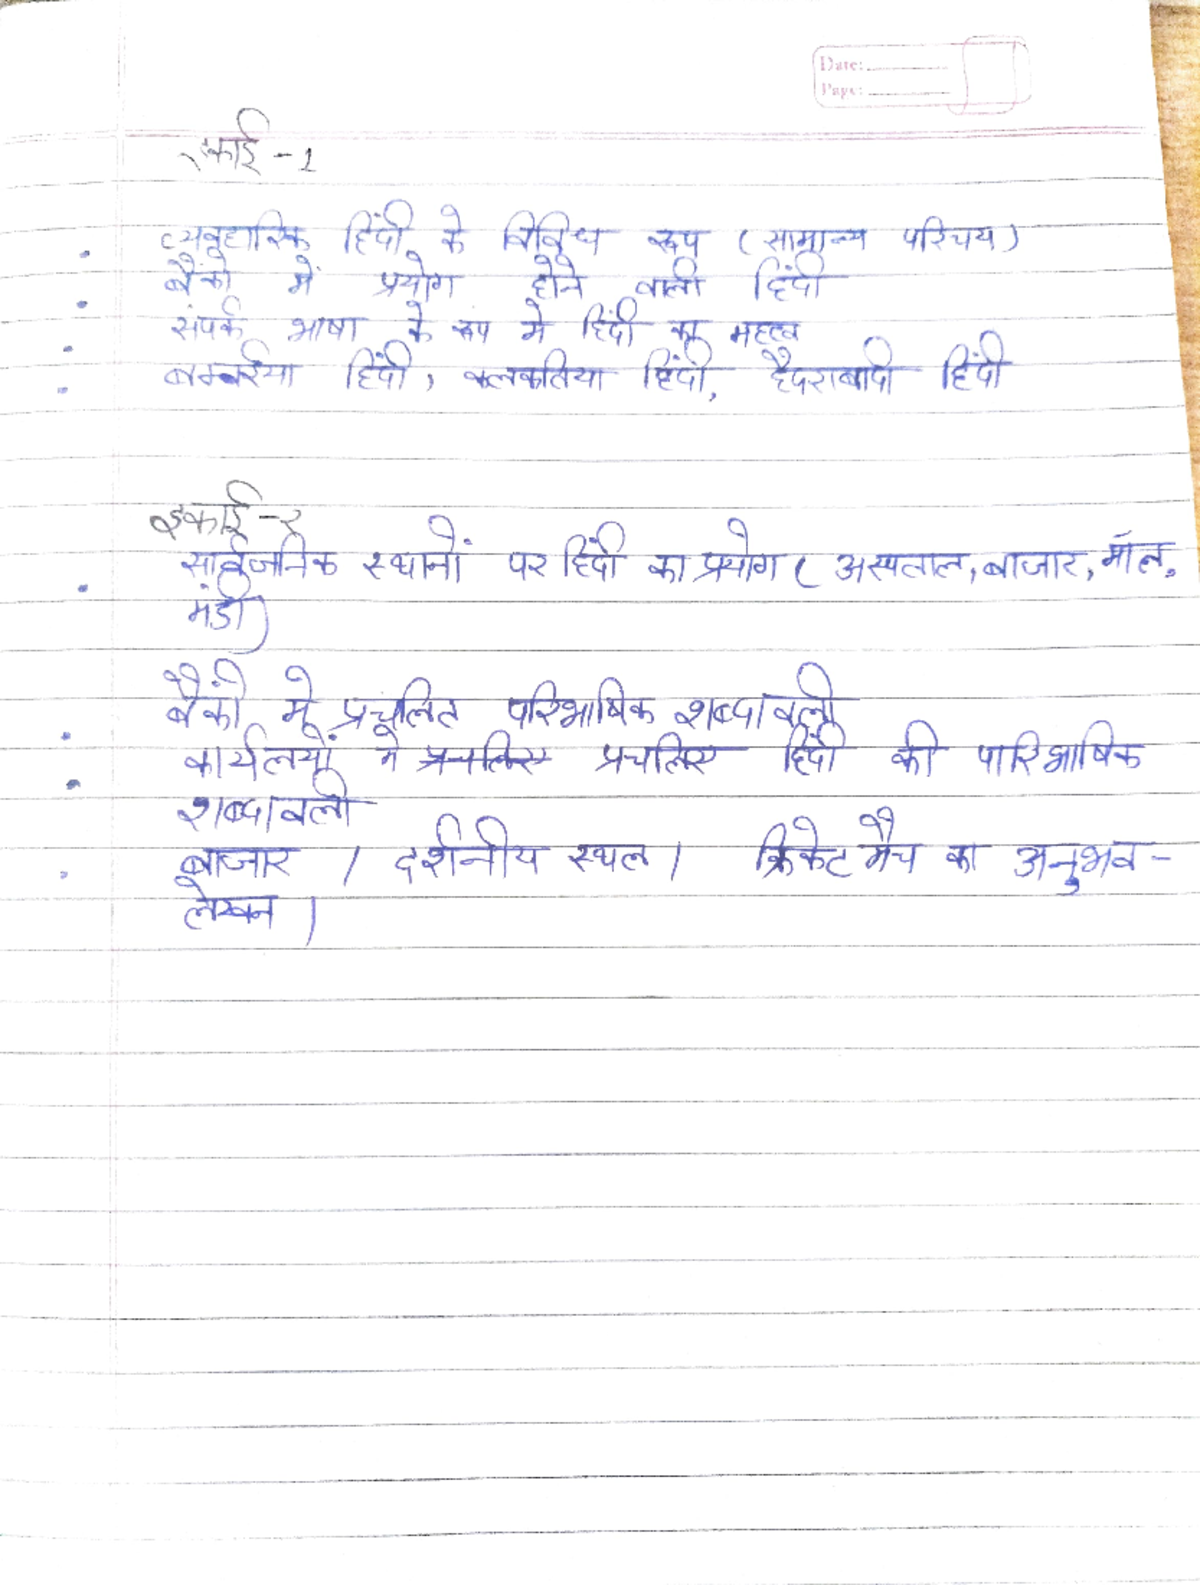 Date:
Page:
इकाई - 1
व्यवहारिक हिंदी के विविध रूप (सामान्य परिचय)
बैंकों में प्रयोग होने वाली हिंदी
संपर्क भाषा के रूप में हिंदी का महत्व
बम्बईया हिंदी, कलकतिया हिंदी, हैदराबादी हिंदी
इकाई - २
सार्वजनिक स्थानों पर हिंदी का प्रयोग ( अस्पताल, बाजार, मॉल,
मंडी)
बैंकों में प्रचलित परिभाषिक शब्दावली
कार्यलयों में प्रचलित प्रचलित हिंदी की पारिभाषिक
शब्दावली
बाजार / दर्शनीय स्थल / क्रिकेट मैच का अनुभव -
लेखन |